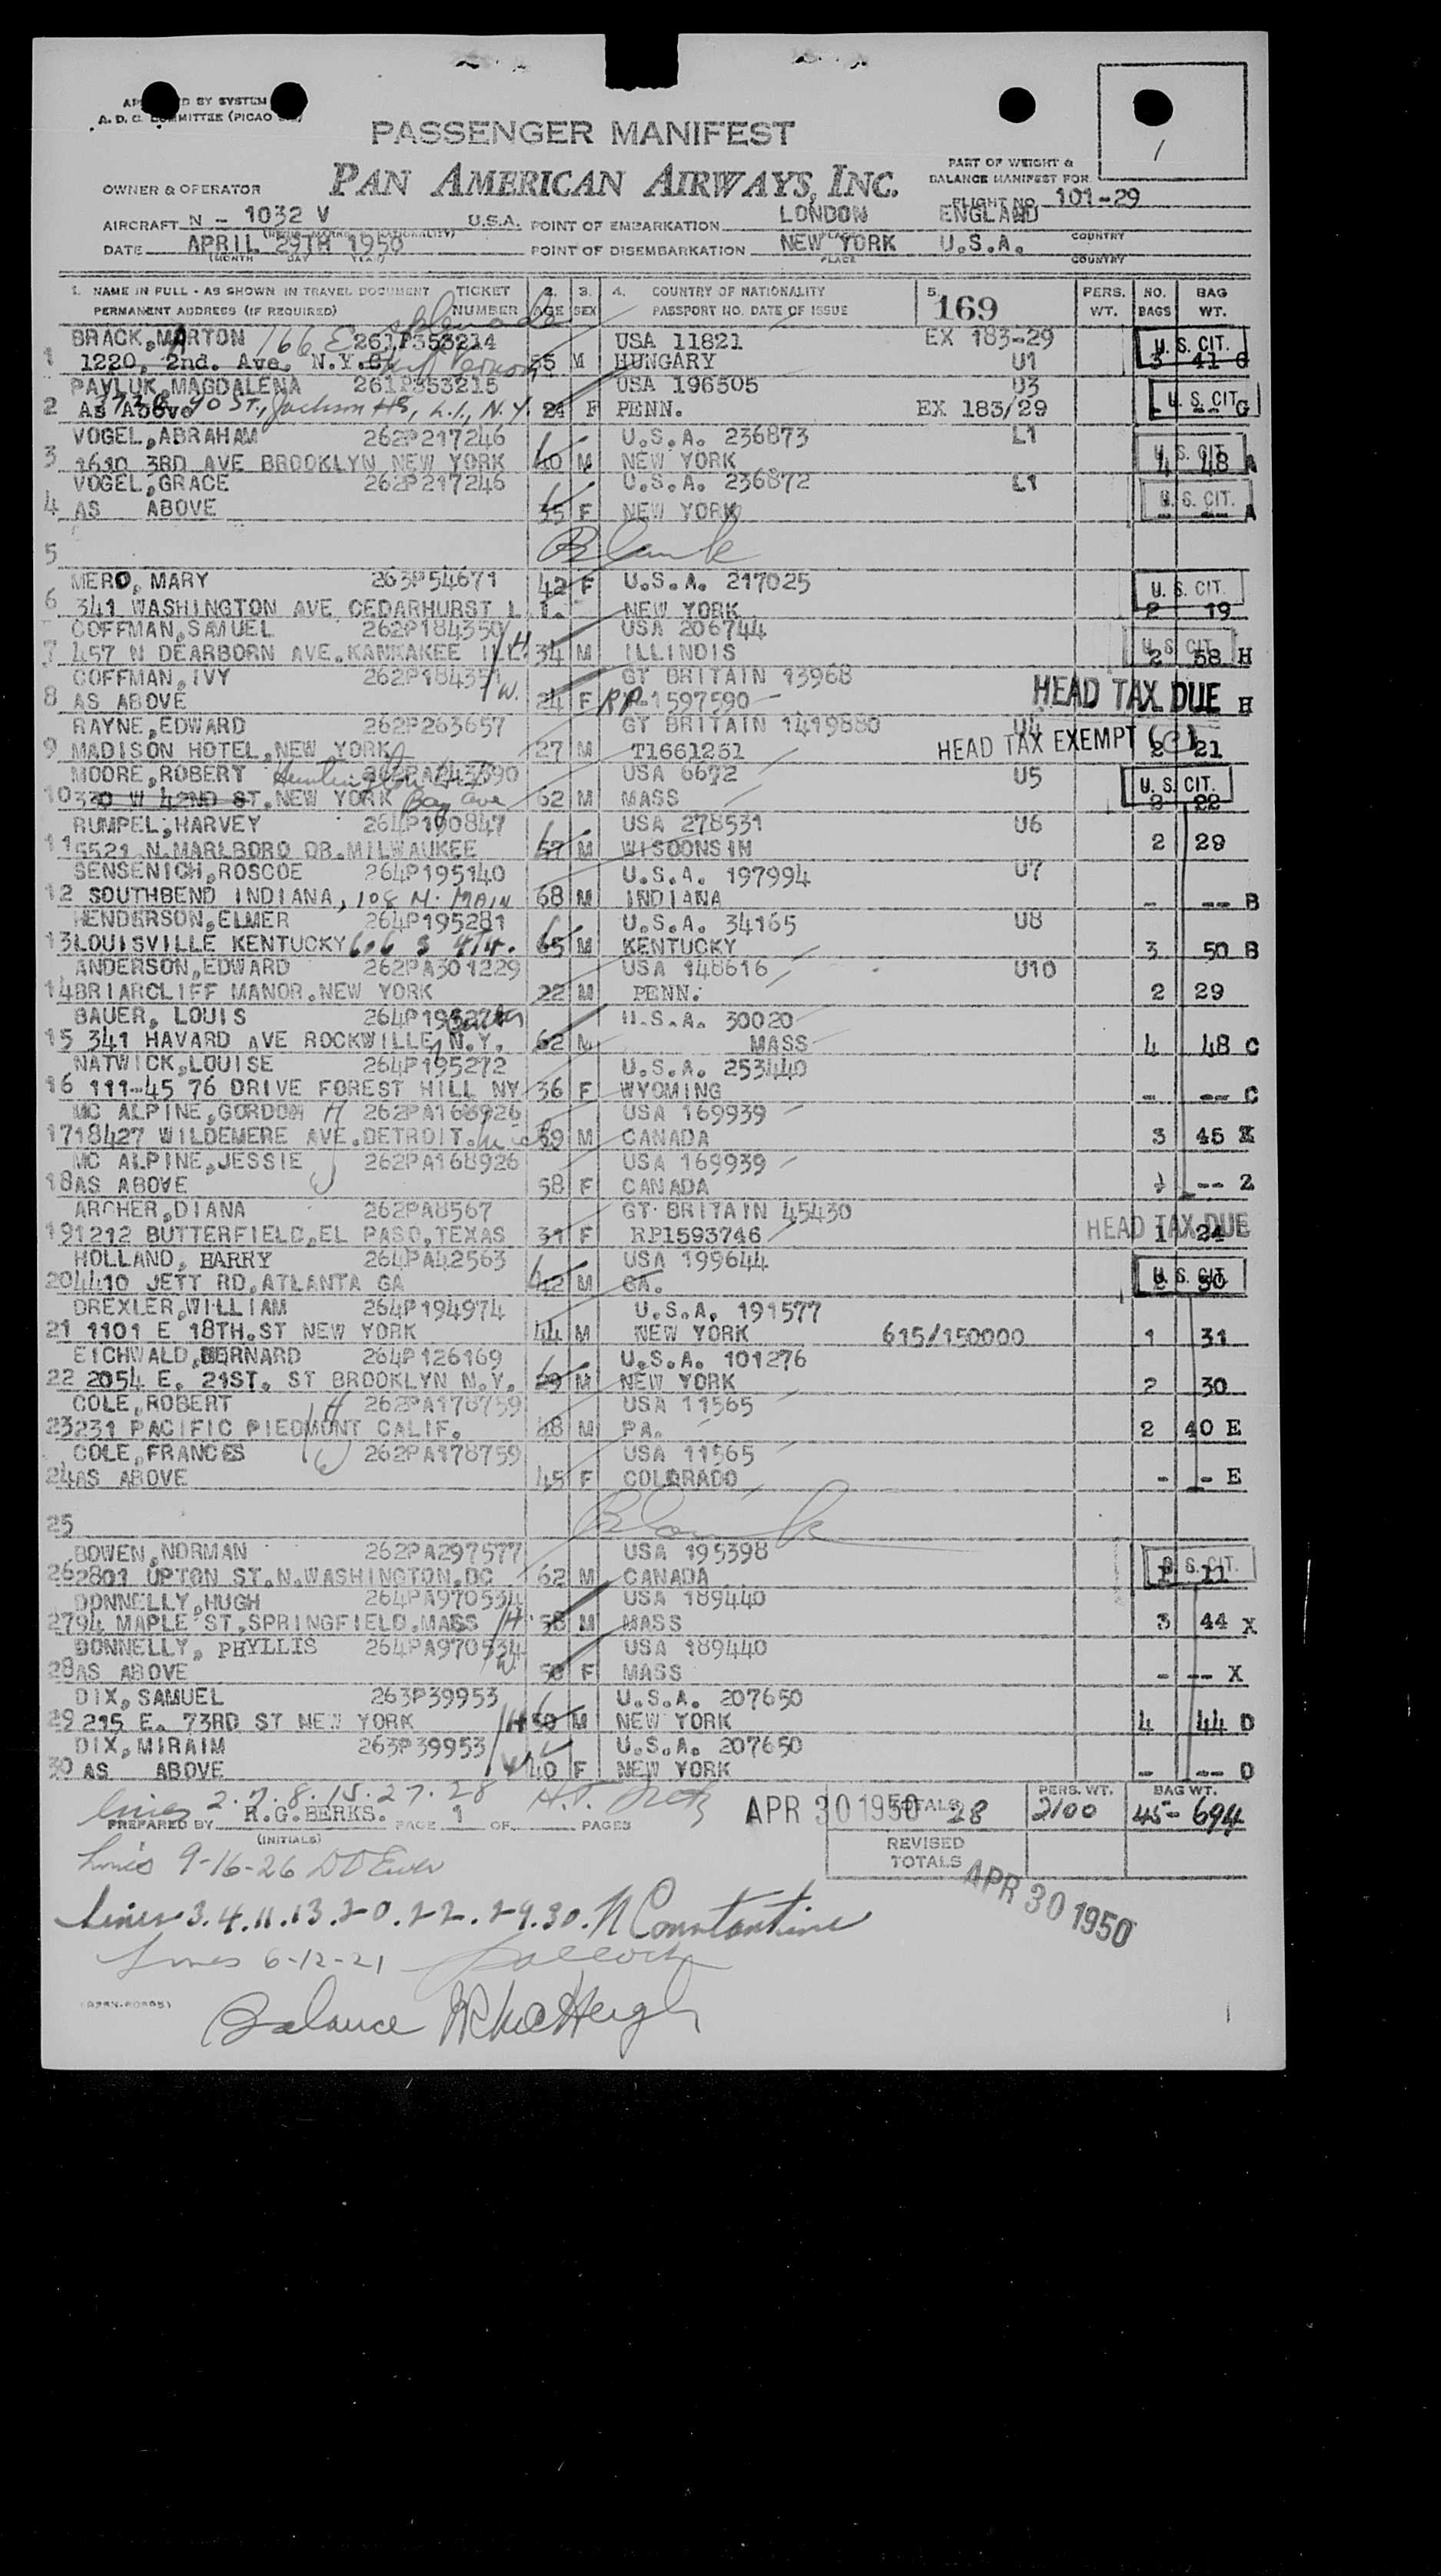 1
PASSENGER MANIFEST
PAN AMERICAN AIRWAYS, INC.
OWNER & OPERATOR
PART OF WEIGHT &
BALANCE MANIFEST FOR
FLIGHT NO. 101-29
AIRCRAFT N - 1032 V U.S.A. POINT OF EMBARKATION LONDON ENGLAND
DATE APRIL 29TH 1950 POINT OF DISEMBARKATION NEW YORK U.S.A.
(MONTH DAY YEAR) PLACE COUNTRY
1. NAME IN FULL - AS SHOWN IN TRAVEL DOCUMENT TICKET 2. 3. 4. COUNTRY OF NATIONALITY 5. PERS. NO. BAG
PERMANENT ADDRESS (IF REQUIRED) NUMBER AGE SEX PASSPORT NO. DATE OF ISSUE 169 WT. BAGS WT.
BRACK, MARTON 166 Esplanade 261P353214 USA 11821 EX 183-29 U.S. CIT.
1 1220, 2nd. Ave. N.Y. Mt Vernon 55 M HUNGARY U1 3 41 G
PAVLUK, MAGDALENA 261P353215 USA 196505 U3 U.S. CIT.
2 As Above 90 ST., Jackson Hts, L.I., N.Y. 21 F PENN. EX 183/29 - -- G
VOGEL, ABRAHAM 262P217246 U.S.A. 236873 L1 U.S. CIT.
3 1610 3RD AVE BROOKLYN NEW YORK 40 M NEW YORK 4 48 A
VOGEL, GRACE 262P217246 U.S.A. 236872 L1 U.S. CIT.
4 AS ABOVE 35 F NEW YORK - -- A
5 Blank
MERO, MARY 263P54671 42 F U.S.A. 217025 U.S. CIT.
6 341 WASHINGTON AVE CEDARHURST L I. NEW YORK 2 19
COFFMAN, SAMUEL 262P184350 H USA 206744 U.S. CIT.
7 457 N DEARBORN AVE. KANKAKEE ILL. 34 M ILLINOIS 2 58 H
COFFMAN, IVY 262P184351 W. GT BRITAIN 13968
8 AS ABOVE 24 F RP-1597590 HEAD TAX DUE H
RAYNE, EDWARD 262P263657 GT BRITAIN 1419880 U4
9 MADISON HOTEL, NEW YORK 27 M T1661261 HEAD TAX EXEMPT 2 21
MOORE, ROBERT Huntington USA 6672 U5 U.S. CIT.
10 330 W 42ND ST. NEW YORK Bay Ave 62 M MASS 2 22
RUMPEL, HARVEY 264P190847 USA 278531 U6
11 5521 N. MARLBORO DR. MILWAUKEE 57 M WISCONSIN 2 29
SENSENICH, ROSCOE 264P195140 U.S.A. 197994 U7
12 SOUTHBEND INDIANA, 108 N. MAIN 68 M INDIANA - -- B
HENDERSON, ELMER 264P195281 U.S.A. 34165 U8
13 LOUISVILLE KENTUCKY 606 S 4th. 65 M KENTUCKY 3 50 B
ANDERSON, EDWARD 262PA301229 USA 148616 U10
14 BRIARCLIFF MANOR. NEW YORK 22 M PENN. 2 29
BAUER, LOUIS U.S.A. 30020
15 341 HAVARD AVE ROCKWILLE, N.Y. 62 M MASS 4 48 C
NATWICK, LOUISE 264P195272 U.S.A. 253440
16 111-45 76 DRIVE FOREST HILL NY 36 F WYOMING - -- C
MC ALPINE, GORDON H 262PA168926 USA 169939
17 18427 WILDEMERE AVE. DETROIT. Mich 59 M CANADA 3 45 Z
MC ALPINE, JESSIE 262PA168926 USA 169939
18 AS ABOVE W 58 F CANADA -- Z
ARCHER, DIANA 262PA8567 GT BRITAIN 45430
19 1212 BUTTERFIELD, EL PASO, TEXAS 31 F RP1593746 HEAD TAX DUE 1 24
HOLLAND, HARRY 264PA42563 USA 199644 U.S. CIT.
20 4410 JETT RD, ATLANTA GA 42 M GA. 2 30
DREXLER, WILLIAM 264P194974 U.S.A. 191577
21 1101 E 18TH. ST NEW YORK 44 M NEW YORK 615/150000 1 31
EICHWALD, BERNARD 264P126169 U.S.A. 101276
22 2054 E. 21ST. ST BROOKLYN N.Y. 29 M NEW YORK 2 30
COLE, ROBERT H 262PA178759 USA 11565
23 231 PACIFIC PIEDMONT CALIF. 48 M PA. 2 40 E
COLE, FRANCES W 262PA178759 USA 11565
24 AS ABOVE 45 F COLORADO - - E
25 Blank
BOWEN, NORMAN 262PA297577 USA 195398 U.S. CIT.
26 2801 UPTON ST. N. WASHINGTON, DC 62 M CANADA 1 11
DONNELLY, HUGH 264PA970534 USA 189440
27 94 MAPLE ST, SPRINGFIELD, MASS H 58 M MASS 3 44 X
DONNELLY, PHYLLIS 264PA970534 USA 189440
28 AS ABOVE W. 50 F MASS - -- X
DIX, SAMUEL 263P39953 U.S.A. 207650
29 215 E. 73RD ST NEW YORK H 50 M NEW YORK 4 44 D
DIX, MIRAIM 263P39953 U.S.A. 207650
30 AS ABOVE W 40 F NEW YORK - -- D
Lines 2.7.8.15.27.28
PREPARED BY R.G. BERKS. PAGE 1 OF PAGES APR 30 1950 TOTALS 28 PERS. WT. 2100 BAG WT. 45- 694
(INITIALS)
REVISED
TOTALS
Lines 9-16-26
APR 30 1950
Lines 3.4.11.13.20.22.29.30. N Constantine
Lines 6-12-21
Balance